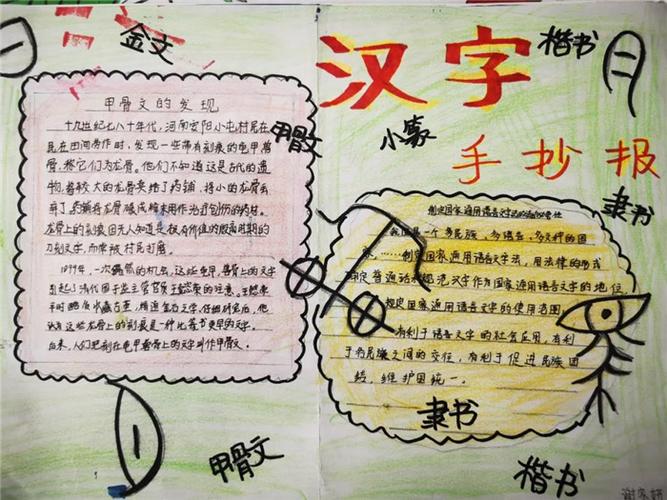 金文
汉字
楷书
小篆
手抄报
隶书
甲骨文的发现
十九世纪七八十年代,河南安阳小屯村民在
在田间劳作时,发现一些带有刻痕的龟甲兽
骨,称它们为龙骨。他们不知道这是古代的遗
物,着较大的龙骨卖给了药铺,将小的龙骨
药铺将龙骨碾成粉末用作治疗创伤的药材。
龙骨上的刻痕但无人知道是极有价值的殷商时期的
刀刻文字,而常被村民刮磨。
1899年,一次偶然的机会,这些龟甲、兽骨上的文字
引起了清代国子监主管官员王懿荣的注意。王懿荣
平时酷爱收藏古董,精通金石文字,仔细研究后,他
认为这些龙骨上的刻痕是一种比篆书更早的文字。
后来,人们把刻在龟甲兽骨上的文字叫作甲骨文。
甲骨文
制定国家通用语言文字法的必要性
我国是一个多民族,多语言,多文种的国
家,……制定国家通用语言文字法,用法律的形式
确定普通话和规范汉字作为国家通用语言文字的地位,
规定国家通用语言文字的使用范围
有利于语言文字的社会应用,有利
于各民族之间的交往,有利于促进民族团
结,维护国家统一。
隶书
甲骨文
楷书